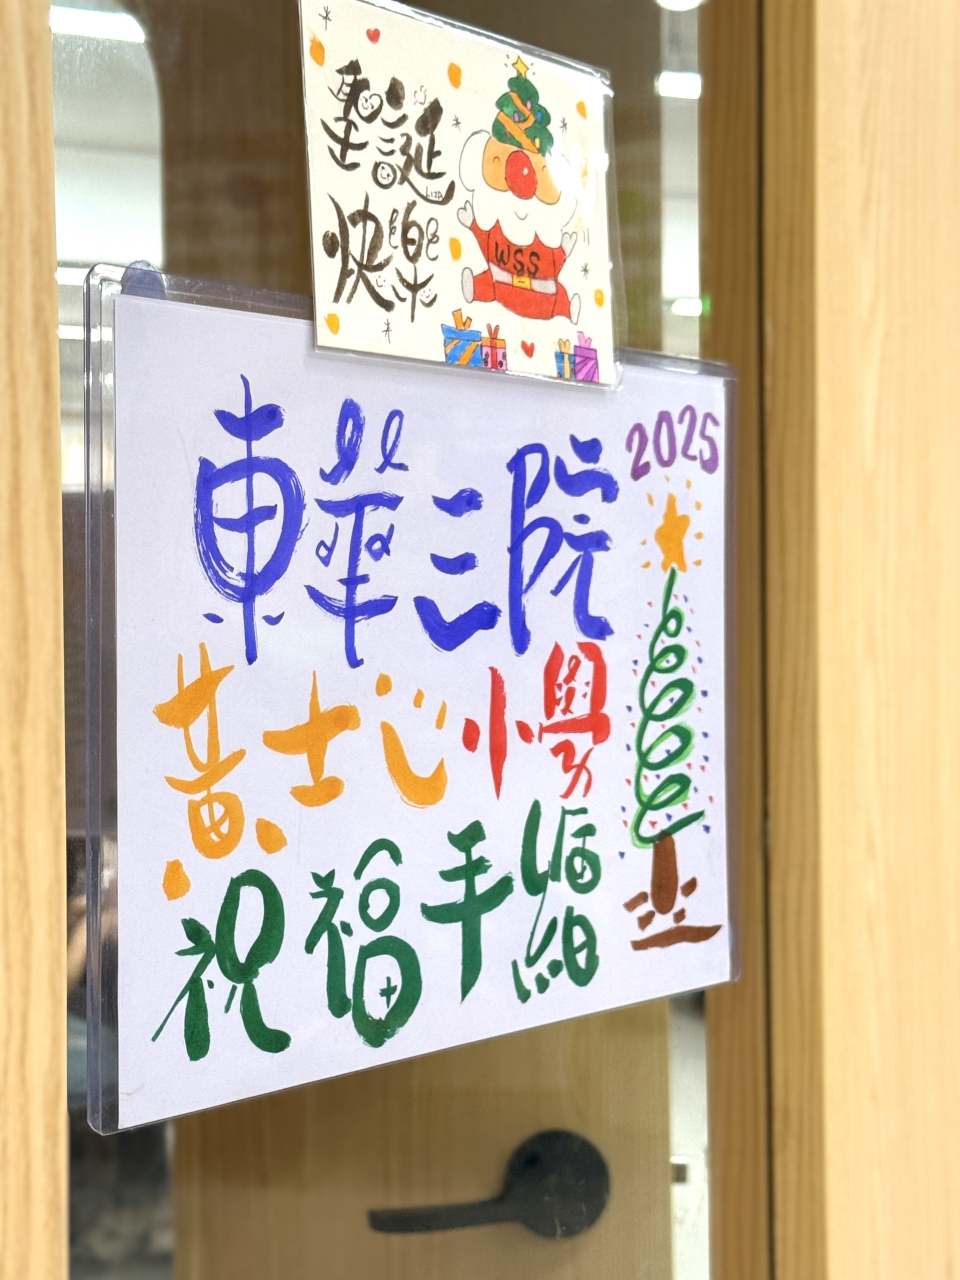 聖誕
快樂
WSS
東華三院
2025
黃士心小學
祝福手